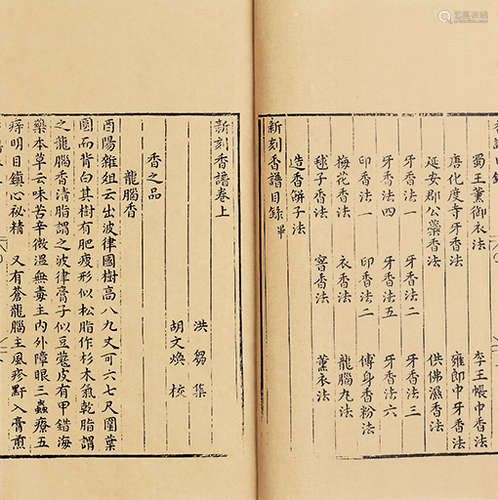 蜀王薰御衣法 李王帳中香法
唐化度寺牙香法 雍郎中牙香法
延安郡公蘂香法 供佛濕香法
牙香法一 牙香法二 牙香法三
牙香法四 牙香法五 牙香法六
印香法一 印香法二 傅身香粉法
梅花香法 衣香法 龍腦九法
毬子香法 窨香法 薰衣法
造香餅子法
新刻香譜目錄
新刻香譜卷上
洪芻集
胡文煥校
香之品
龍腦香
酉陽雜俎云出波律國樹高八九丈可六七尺圍葉
圓而背白其樹有肥瘦形似松脂作杉木氣乾脂謂
之龍腦香清脂謂之波律膏子似豆蔻皮有甲錯海
藥本草云味苦辛微溫無毒主內外障眼三蟲療五
痔明目鎮心祕精 又有蒼龍腦主風疹䵟入膏煎